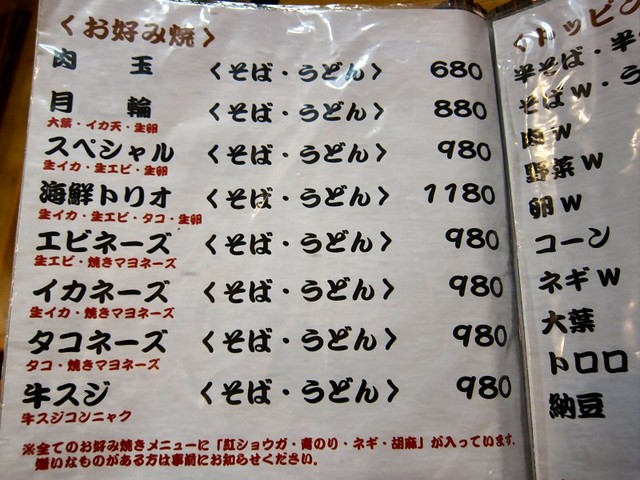 〈お好み焼〉
肉 玉 〈そば・うどん〉 680
月 輪 〈そば・うどん〉 880
大葉・イカ天・生卵
スペシャル 〈そば・うどん〉 980
生イカ・生エビ・生卵
海鮮トリオ 〈そば・うどん〉 1180
生イカ・生エビ・タコ・生卵
エビネーズ 〈そば・うどん〉 980
生エビ・焼きマヨネーズ
イカネーズ 〈そば・うどん〉 980
生イカ・焼きマヨネーズ
タコネーズ 〈そば・うどん〉 980
タコ・焼きマヨネーズ
牛スジ 〈そば・うどん〉 980
牛スジコンニャク
※全てのお好み焼きメニューに「紅ショウガ・青のり・ネギ・胡麻」が入っています。
嫌いなものがある方は事前にお知らせください。
〈トッピン
半そば・半
そばW・う
肉W
野菜W
卵W
コーン
ネギW
大葉
トロロ
納豆